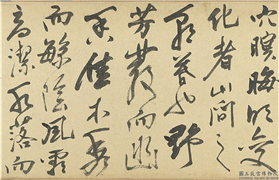 穴暝晦明變
化者山間之
朝暮也野
芳發而幽
香佳木秀
而繁陰風霜
高潔水落而
國立故宮博物院